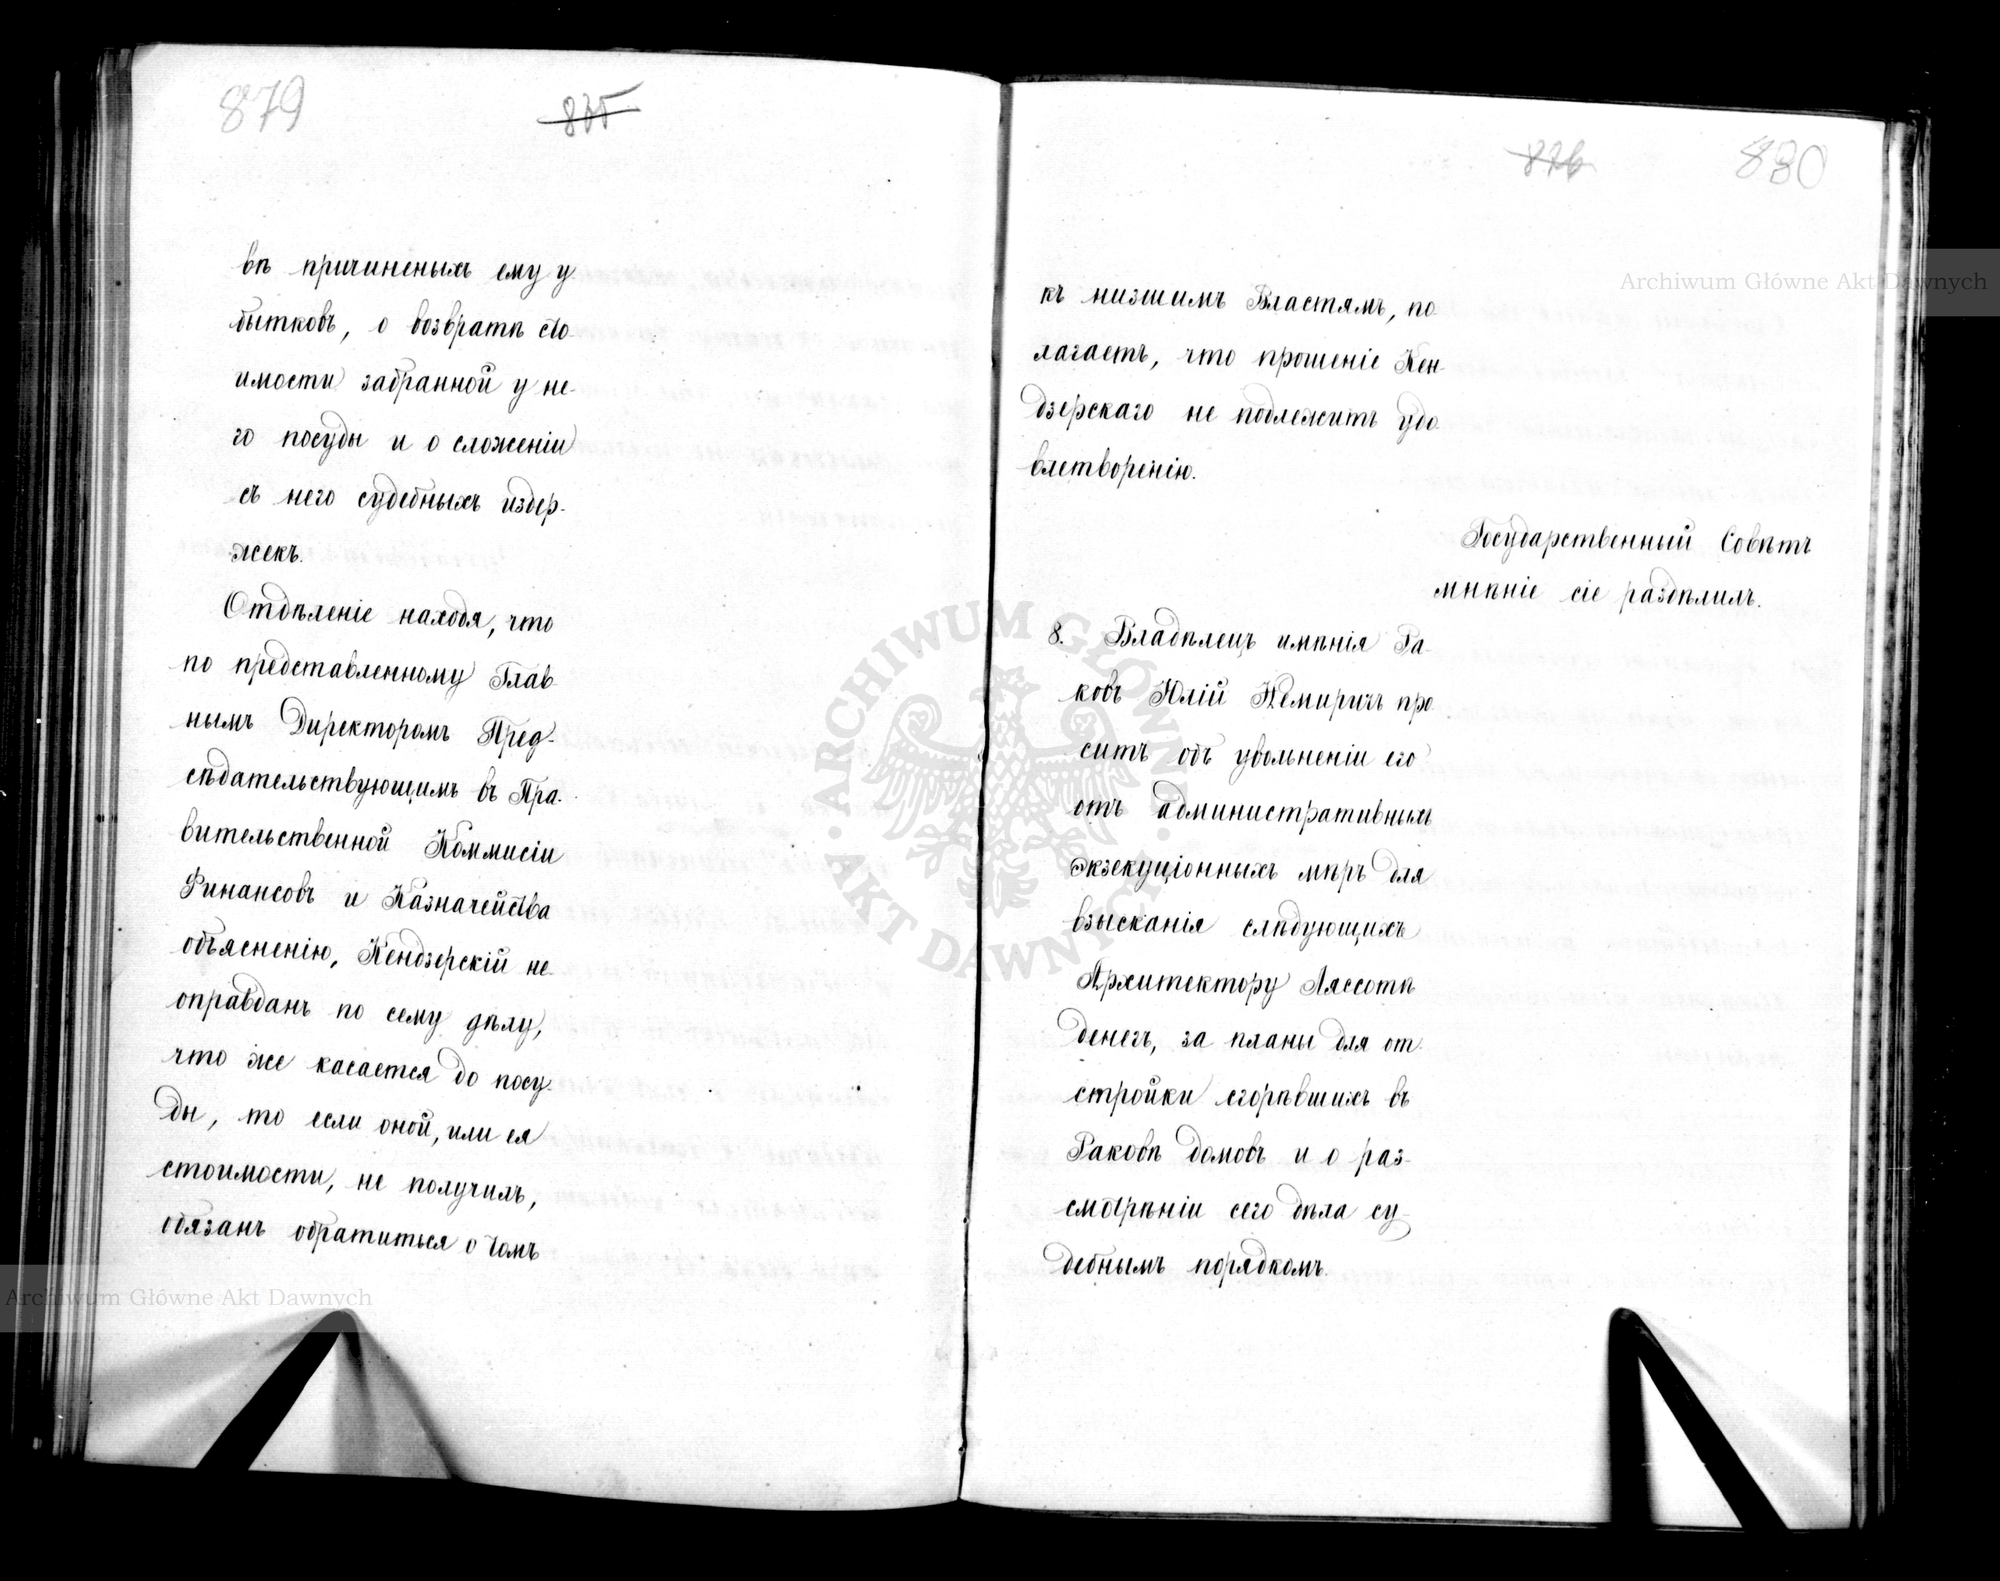 879
835
въ причиненыхъ ему у
бытковъ, о возвратѣ сто
имости забранной у не-
го посуды и о сложеніи
съ него судебныхъ издер-
жекъ.
Отдѣленіе находя, что
по представленному Глав-
нымъ Директоромъ Пред-
сѣдательствующимъ въ Пра-
вительственной Коммисіи
Финансовъ и Казначейства
объясненію, Кендзерскій не-
оправданъ по сему дѣлу,
что же касается до посу-
ды, то если оной, или ея
стоимости, не получилъ,
обязанъ обратиться о томъ
836
880
къ низшимъ Властямъ, по
лагаетъ, что прошеніе Кен-
дзерскаго не подлежитъ удо
влетворенію.
Государственный Совѣтъ
мнѣніе сіе раздѣлилъ.
8. Владѣлецъ имѣнія Ра-
ковъ Юлій Немиричъ про
ситъ объ увольненіи его
отъ административныхъ
экзекуціонныхъ мѣръ для
взысканія слѣдующихъ
Архитектору Ляссотѣ
денегъ, за планы для от-
стройки сгорѣвшихъ въ
Раковѣ домовъ и о раз-
смотрѣніи сего дѣла су-
дебнымъ порядкомъ.
Archiwum Główne Akt Dawnych
Archiwum Główne Akt Dawnych
ARCHIWUM GŁÓWNE
AKT DAWNYCH